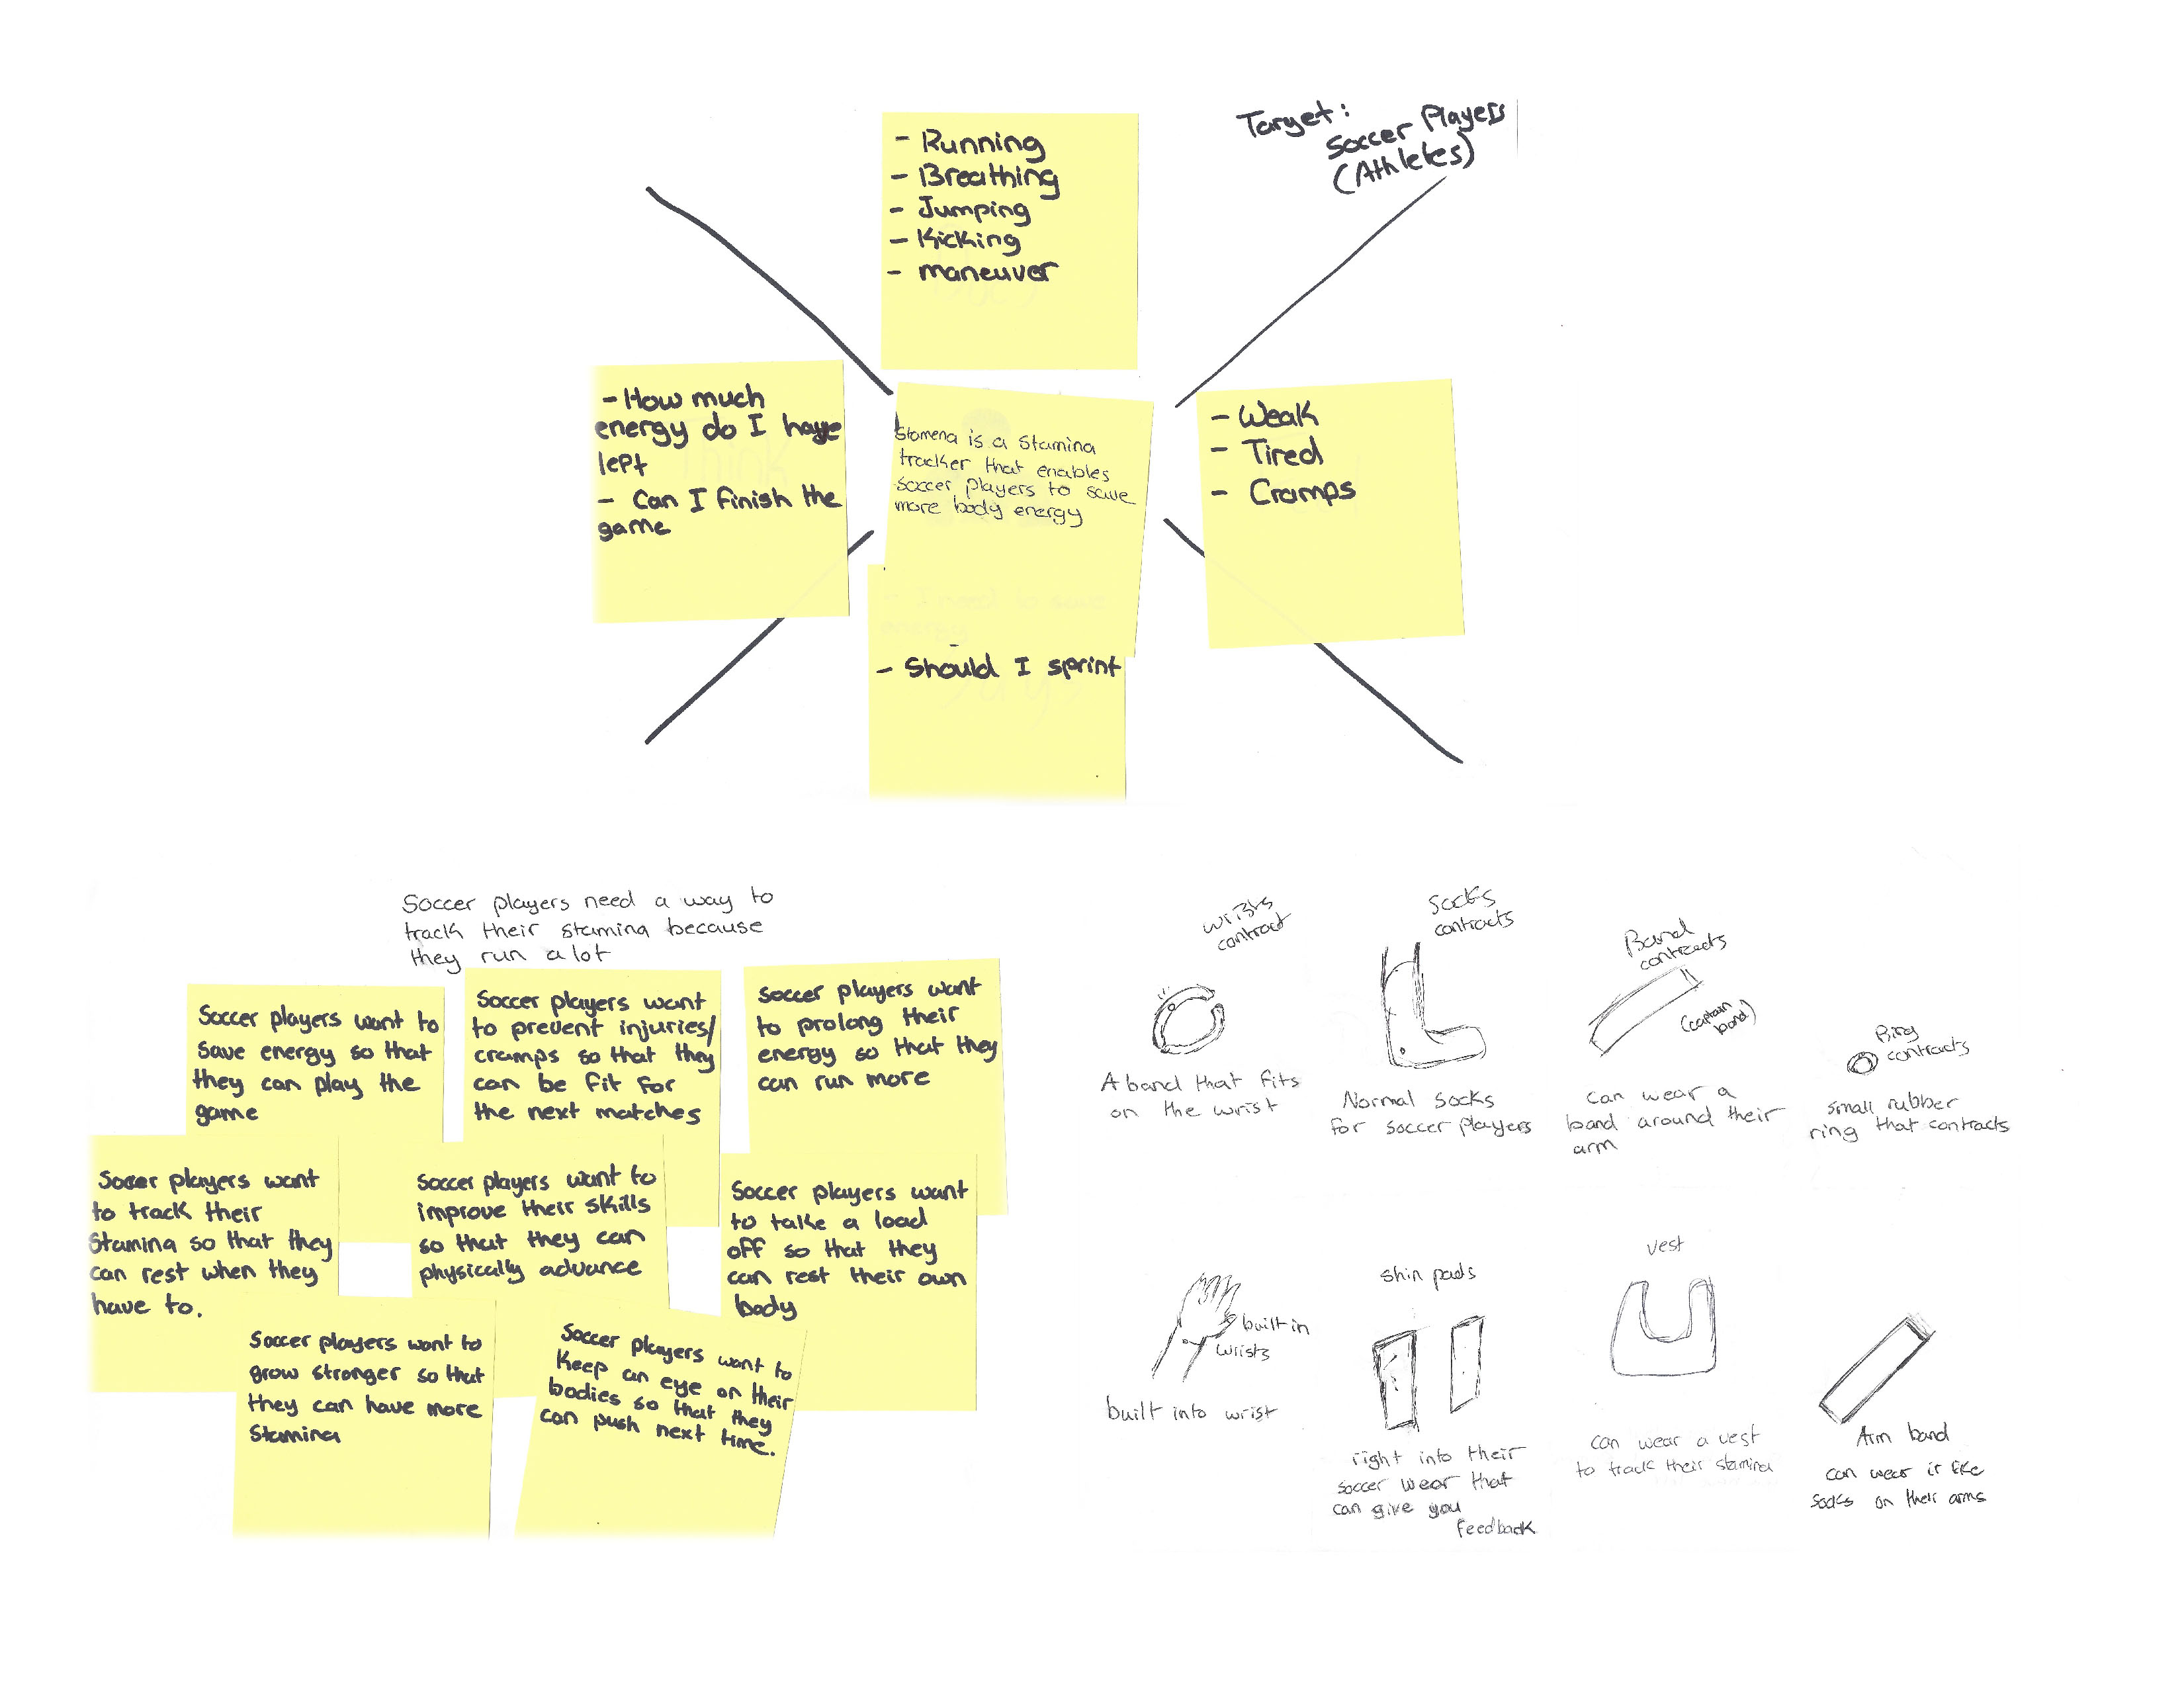 Target:
Soccer Players
(Athletes)
- Running
- Breathing
- Jumping
- Kicking
- maneuver
- How much
energy do I have
left
- Can I finish the
game
Stamena is a stamina
tracker that enables
soccer players to save
more body energy
- Weak
- Tired
- Cramps
- I need to save
energy
- Should I sprint
Soccer players need a way to
track their stamina because
they run a lot
Soccer players want to
save energy so that
they can play the
game
Soccer players want
to prevent injuries/
cramps so that they
can be fit for
the next matches
Soccer players want
to prolong their
energy so that they
can run more
Soccer players want
to track their
Stamina so that they
can rest when they
have to.
Soccer players want to
improve their skills
so that they can
physically advance
Soccer players want
to take a load
off so that they
can rest their own
body
Soccer players want to
grow stronger so that
they can have more
Stamina
Soccer players want to
Keep an eye on their
bodies so that they
can push next time.
wrists
contract
A band that fits
on the wrist
Socks
contracts
Normal socks
for soccer players
Band
contracts
(captain
band)
can wear a
band around their
arm
Ring
contracts
small rubber
ring that contracts
built in
wrists
built into wrist
shin pads
right into their
soccer wear that
can give you
feedback
vest
can wear a vest
to track their stamina
Arm band
can wear it like
socks on their arms